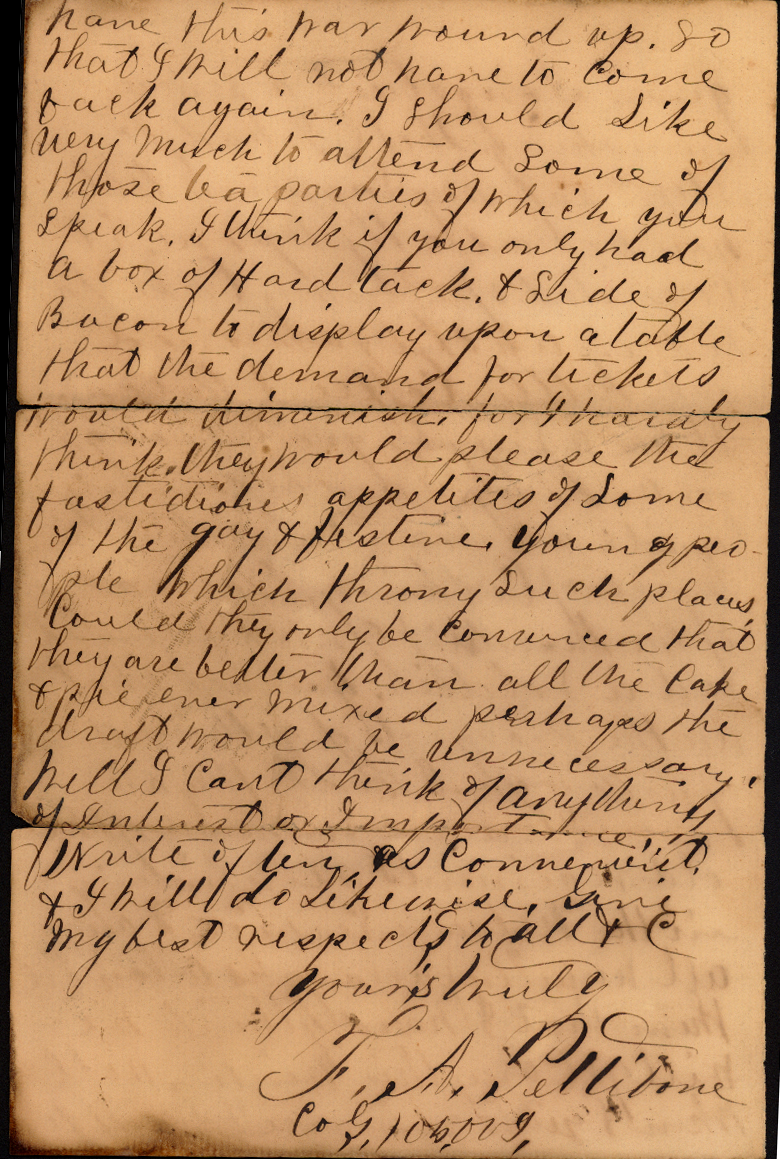 have this war wound up. So
that I will not have to Come
back again. I should Like
very much to attend Some of
those tea parties of which you
Speak. I think if you only had
a box of Hard tack, & Side of
Bacon to display upon a table
that the demand for tickets
would diminish, for I hardly
think, they would please the
fastidious appetites of Some
of the gay & festive, young peo-
ple which throng Such places,
Could they only be Convinced that
they are better than all the Cake
& pie ever mixed perhaps the
draft would be unnecessary.
Well I Cant think of anything
of Interest or Importance,
Write often, as Convenient,
& I will do Likewise, Give
my best respects to all & C
Your's truly
F. A. Pettibone
Co G, 105, O V I,